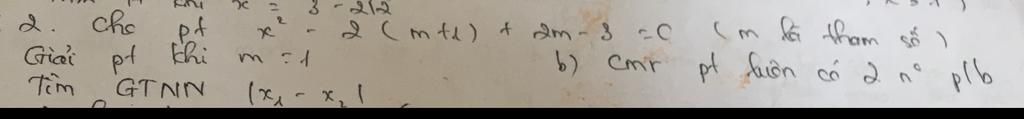 x = 3 - 2√2
2. Cho pt x² - 2(m+1) + 2m - 3 = 0 (m là tham số)
Giải pt khi m = 1 b) Cmr pt luôn có 2 n° p/b
Tìm GTNN |x₁ - x₂|